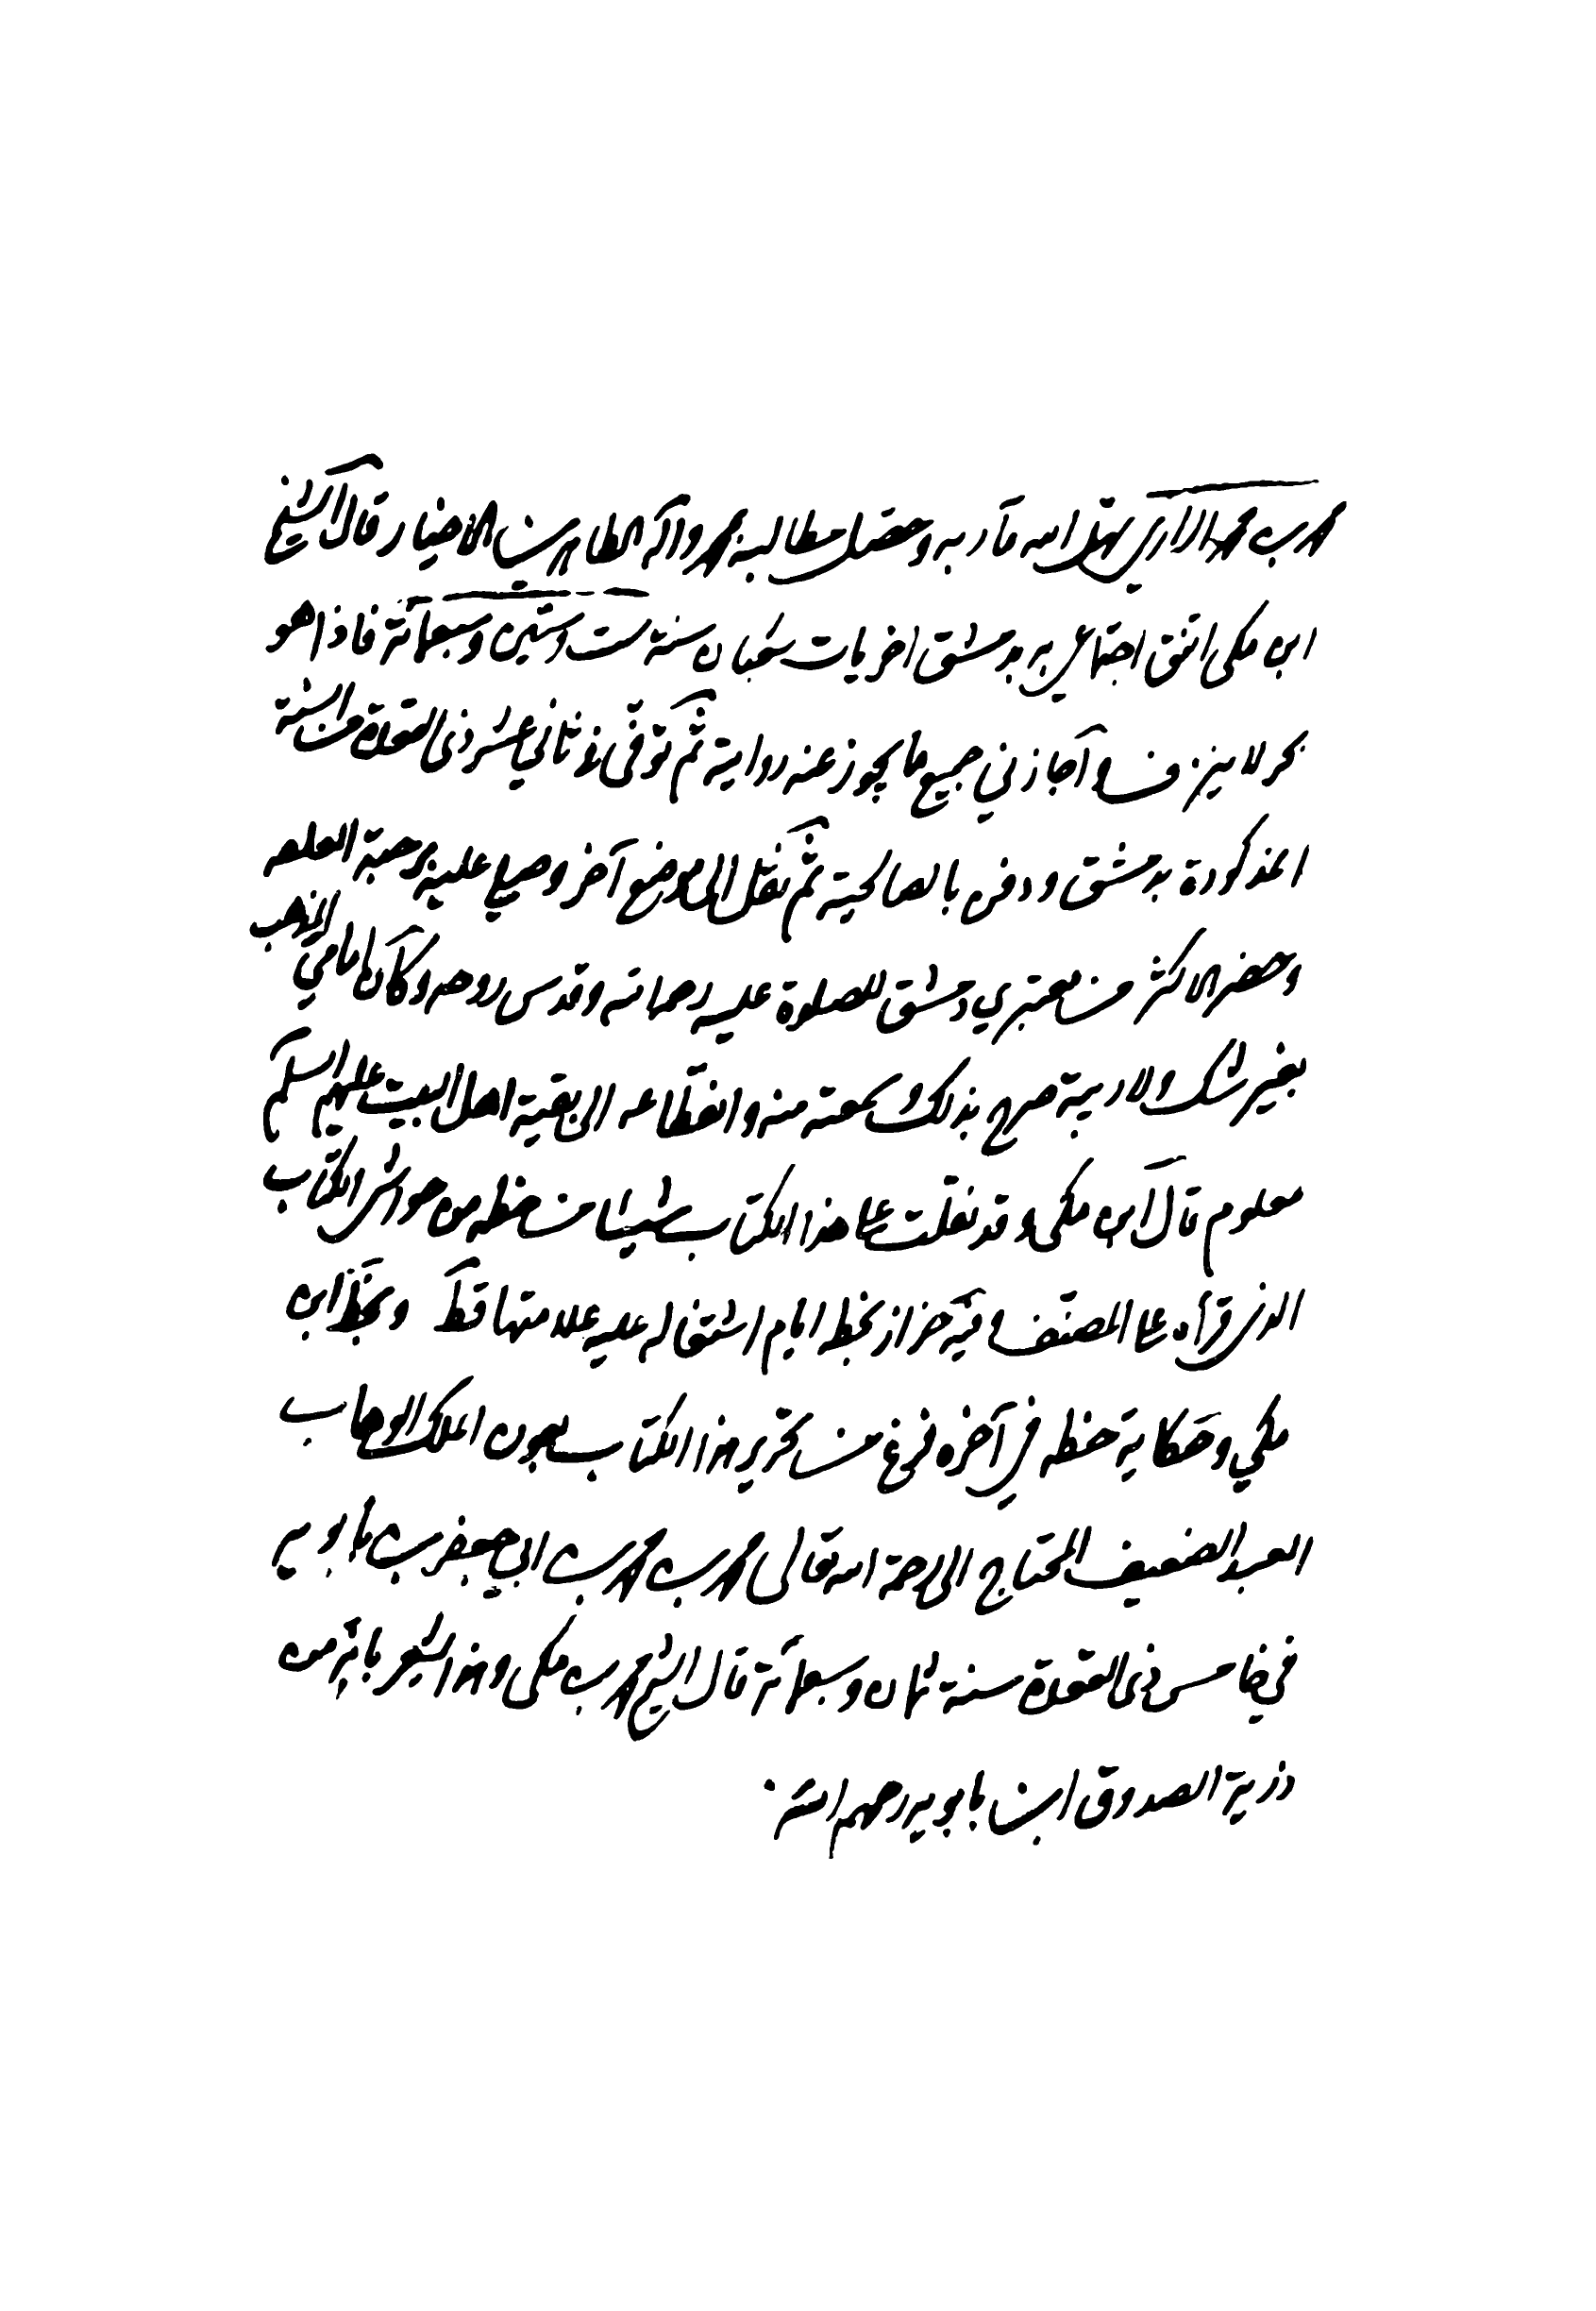 محمد بن محمد الرازي سهّل الله مآربه وحصّل مطالبه بمحمد وآله الطاهرين الاخيار قال الشيخ
ابن مكي اتفق اجتماعي به بدمشق اخريات شعبان سنة ست وستين وسبعمائة فاذا هو
بحر لا ينزف واجازني جميع ما يجوز عنه رواية ثم توفّى في ثاني عشر ذى القعدة من السنة
المذكورة بدمشق ودفن بالصالحية ثم نقل الى موضع آخر وصلي عليه برحبة القلعه
وحضر الاكثر من معتبري دمشق للصلوة عليه رحمه الله وقدس روحه وكان امامي المذهب
بغير شك ولا ريبة صرح بذلك وسمعته منه وانقطاعه الى بقية اهل البيت عليهم السلم
معلوم قال ابن مكي وقد نقلت على هذا الكتاب شيئا من خطه من حواشي الكتاب
الذي قرأه على المصنّف وفيه حزاز بخطه ايام اشتغاله عليه علامتها قط وبخطّ ابن
مكي وحكاية خطه في آخره فرغ من تحرير هذا الكتاب بعون الملك الوهاب
العبد الضعيف المحتاج الى رحمة الله تعالى محمد بن محمد بن ابي جعفر بن بابويه
في خامس ذى القعدة سنة ثمان وسبعمائة قال الشيخ محمد بن مكي وهذا يشعر بانه من
ذرية الصدوق ابن بابويه رحمهم الله